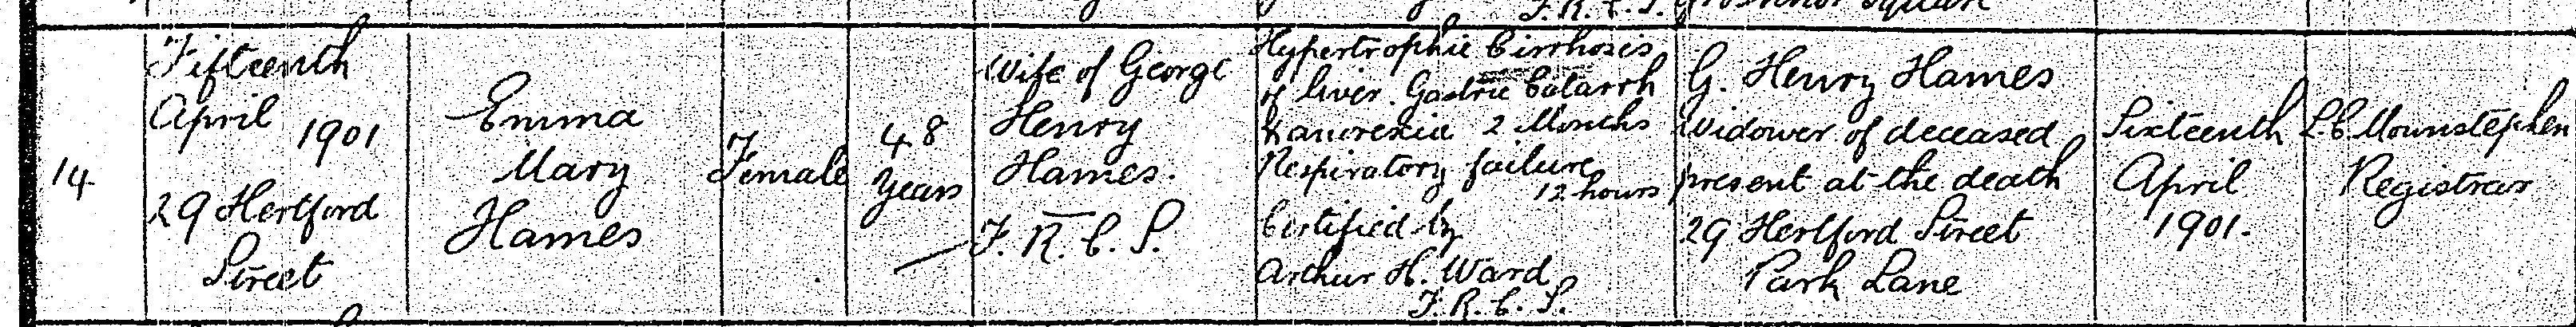 F.R.C.S. Grosvenor Square
14
Fifteenth
April 1901
29 Hertford
Street
Emma
Mary
Hames
Female
48
years
Wife of George
Henry
Hames.
F.R.C.S.
Hypertrophic Cirrhosis
of liver. Gastric Catarrh
& anorexia 2 Months
Respiratory failure
12 hours
Certified by
Arthur H. Ward
F.R.C.S.
G. Henry Hames
Widower of deceased
present at the death
29 Hertford Street
Park Lane
Sixteenth
April
1901.
L.C. Mounstephen
Registrar